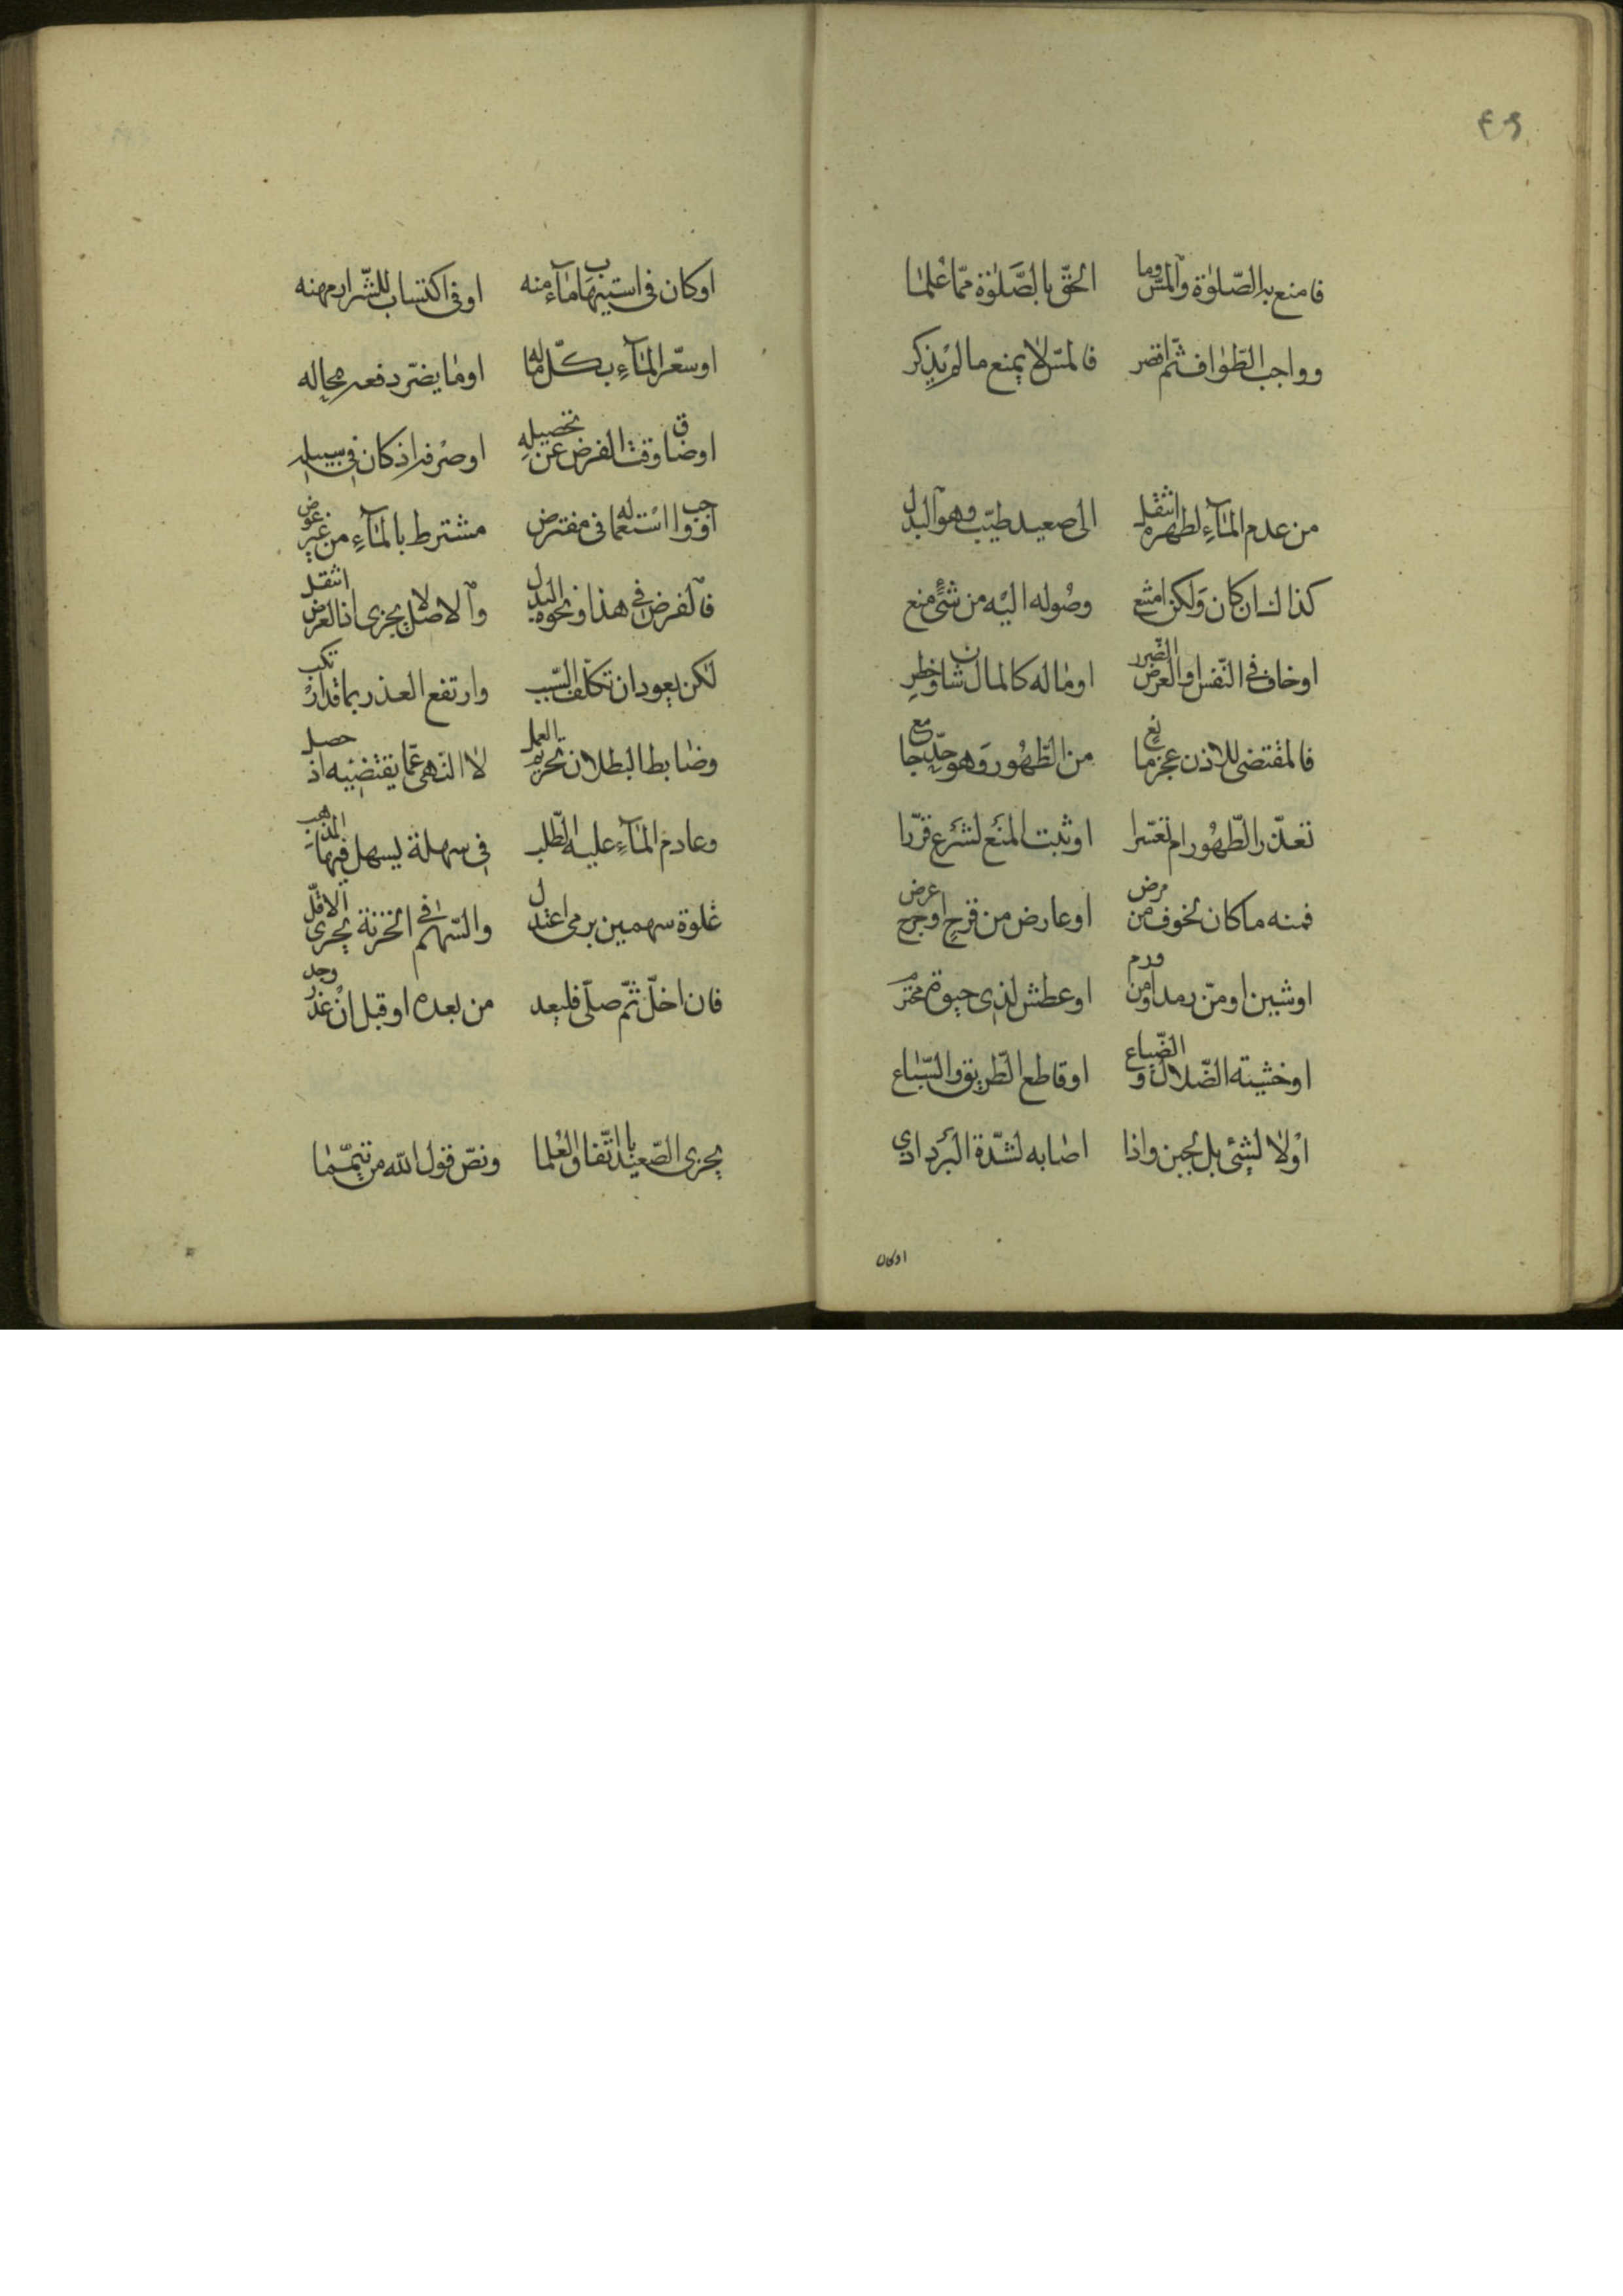 ٤٩
فامنع به الصّلوٰة والمسّ وما الحقّ بالصَّلوٰة ممّا عُلما
وواجب الطّواف ثمّ اقصر فالمسّ لا يمنع ما لم يذكر
من عدم المآءِ لطهره انتقل الى صعيد طيّب وهو البدل
كذاك ان كان وَلكن امتنع وصُوله اليْه من شئٍ منع
او خاف فى النّفس او العرض الضّرر او ما له كالمال شان وخطر
فالمقتضى للاذن عجز مانع من الطّهُور وَهو حدّ جامع
تعذّر الطّهُور ام تعسّرا او ثبت المنَع لشَرع قرّرا
فمنه ما كان لخوف من مرض او عارض من قرح او جرح عرض
او شين او من رمد او من ورم او عطش لذى حيوة محترم
او خشيته الضّلال والضّياع او قاطع الطّريق والسّباع
اوْلا لشئى بل لجبن واذا اصابه لشدّة البَرد اذى
اوكان
او كان فى استيهاب مآء منه او فى اكتساب للشّرا مهنه
او سعّر المآءِ بكلّ ماله او ما يضرّ دفعه بحاله
او ضاق وقت الفرض عن تحصيلِه او صرفه اذ كان فى سبيله
او وجب استعماله فى مفترض مشترط بالمآءِ من غير عوض
فالفرض فى هذا ونحوه البدل والاصل لا يجزى اذا الفرض انتقل
لكن يعود ان تكلّف السّبب وارتفع العذر بما قد ارتكب
وضابط البطلان تحريم العمل لا النّهى عمّا يقتضيْه اذ حصل
وعادم المآءِ عليه الطّلب فى سهلة يسهل فيها المذهب
غلوة سهمين برمى اعتدل والسّهم فى الحزنة يجزى الاقلّ
فان اخلّ ثمّ صلّى فليعد من بعده او قبل انْ عذر وجد
يجزى الصّعيد باتّفاق العُلما ونصّ قول اللّه من تيمّما